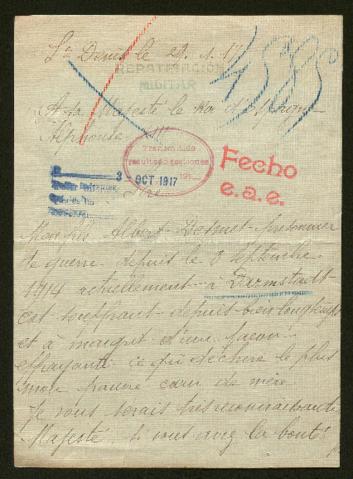 St Denis le 29. 1. 17
REPATRIACIÓN
MILITAR
4585
A sa Majesté le Roi d'Espagne
Alphonse
Transmitido
resultado gestiones
Fecho
e.a.e.
3 OCT 1917
Sire
Mon fils Albert prisonnier
de guerre depuis le 8 Septembre
1914 actuellement à Darmstadt
est souffrant depuis bien longtemps
et a maigri d'une façon
effrayante ce qui déchire le plus
mon pauvre cœur de mère
Je vous serais très reconnaissante
Majesté si vous avez la bonté